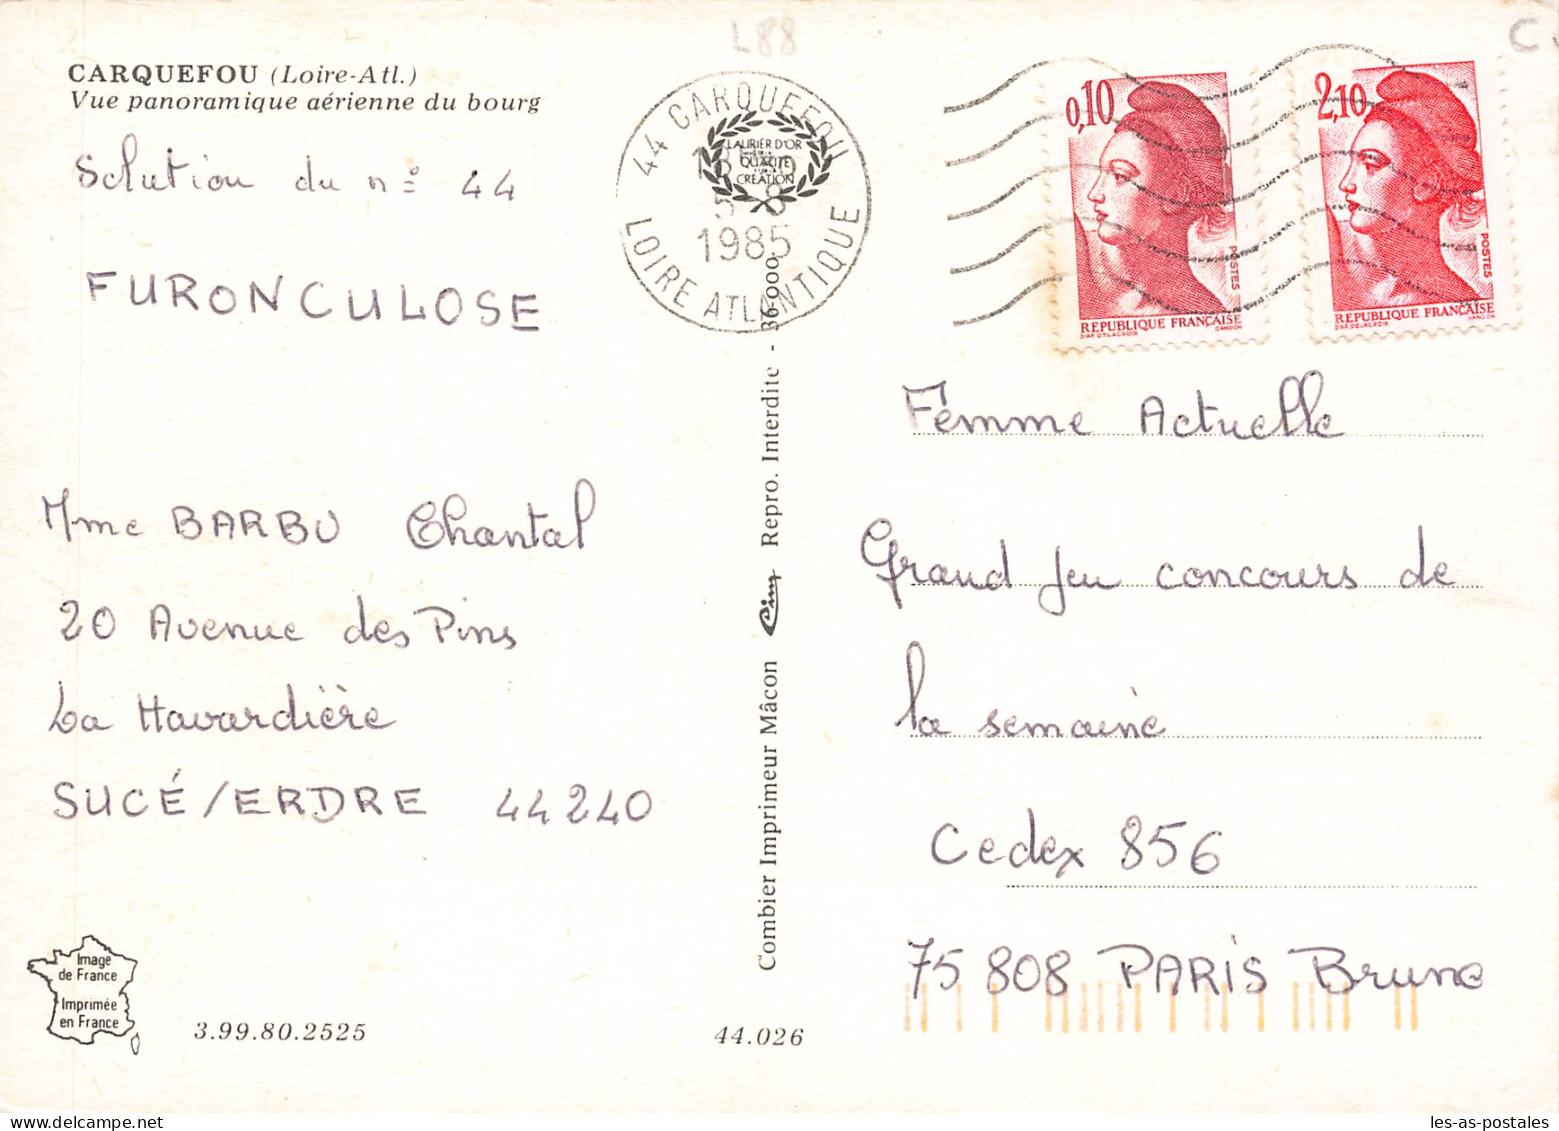 L88
C
CARQUEFOU (Loire-Atl.)
Vue panoramique aérienne du bourg
Solution du n° 44
FURONCULOSE
Mme BARBU Chantal
20 Avenue des Pins
La Havardière
SUCÉ/ERDRE 44240
Image
de France
Imprimée
en France
3.99.80.2525
44.026
44 CARQUEFOU
LOIRE ATLANTIQUE
1985
LAURIER D'OR
QUALITÉ
CRÉATION
Combier Imprimeur Mâcon Cim Repro. Interdite - 36000
0,10
POSTES
REPUBLIQUE FRANÇAISE
D'AP. DELACROIX GANDON
2,10
POSTES
REPUBLIQUE FRANÇAISE
D'AP. DELACROIX GANDON
Femme Actuelle
Grand Jeu concours de
la semaine
Cedex 856
75 808 PARIS Brune
les-as-postales